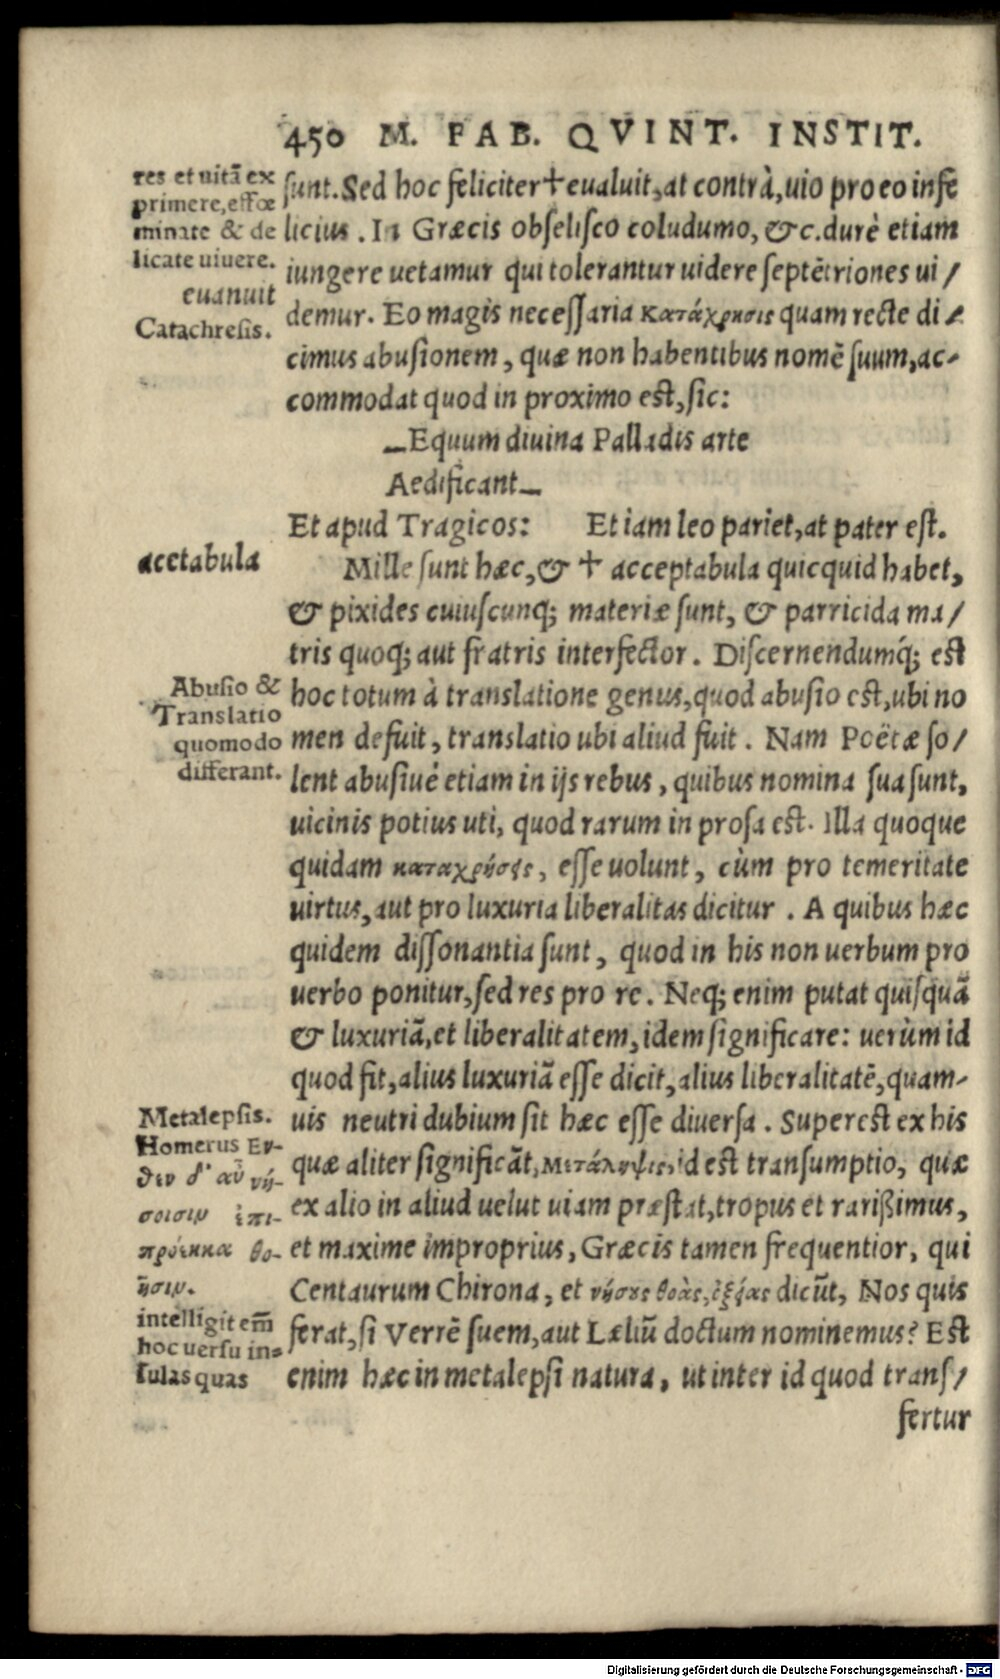 450 M. FAB. QVINT. INSTIT.
res et uitã ex
primere, effœ
minate & de
licate uiuere.
euanuit
Catachresis.
sunt. Sed hoc feliciter † eualuit, at contrà, uio pro eo infe
licius. In Græcis obselisco coludumo, &c. durè etiam
iungere uetamur qui tolerantur uidere septẽtriones ui/
demur. Eo magis necessaria κατάχρησις quam recte di/
cimus abusionem, quæ non habentibus nomẽ suum, ac-
commodat quod in proximo est, sic:
—Equum diuina Palladis arte
Aedificant—
Et apud Tragicos: Et iam leo pariet, at pater est.
acetabula
Mille sunt hæc, & † acceptabula quicquid habet,
& pixides cuiuscunq; materiæ sunt, & parricida ma/
tris quoq; aut fratris interfector. Discernendumq́; est
Abusio &
Translatio
quomodo
differant.
hoc totum à translatione genus, quod abusio est, ubi no
men defuit, translatio ubi aliud fuit. Nam Poëtæ so/
lent abusiuè etiam in ijs rebus, quibus nomina sua sunt,
uicinis potius uti, quod rarum in prosa est. Illa quoque
quidam καταχρήσεις, esse uolunt, cùm pro temeritate
uirtus, aut pro luxuria liberalitas dicitur. A quibus hæc
quidem dissonantia sunt, quod in his non uerbum pro
uerbo ponitur, sed res pro re. Neq; enim putat quisquã
& luxuriã, et liberalitatem, idem significare: uerùm id
quod fit, alius luxuriã esse dicit, alius liberalitatẽ, quam-
uis neutri dubium sit hæc esse diuersa. Superest ex his
quæ aliter significãt, Μετάληψις, id est transumptio, quæ
ex alio in aliud uelut uiam præstat, tropus et rarißimus,
et maxime improprius, Græcis tamen frequentior, qui
Centaurum Chirona, et νήσους θοὰς, ὀξείας dicũt, Nos quis
ferat, si Verrẽ suem, aut Læliũ doctum nominemus? Est
enim hæc in metalepsi natura, ut inter id quod trans/
fertur
Metalepsis.
Homerus Εν-
θεν δ' αὖ νή-
σοισιν ἐπι-
προέηκα θο-
ῇσιν.
intelligit em̃
hoc uersu in=
sulas quas
Digitalisierung gefördert durch die Deutsche Forschungsgemeinschaft - DFG